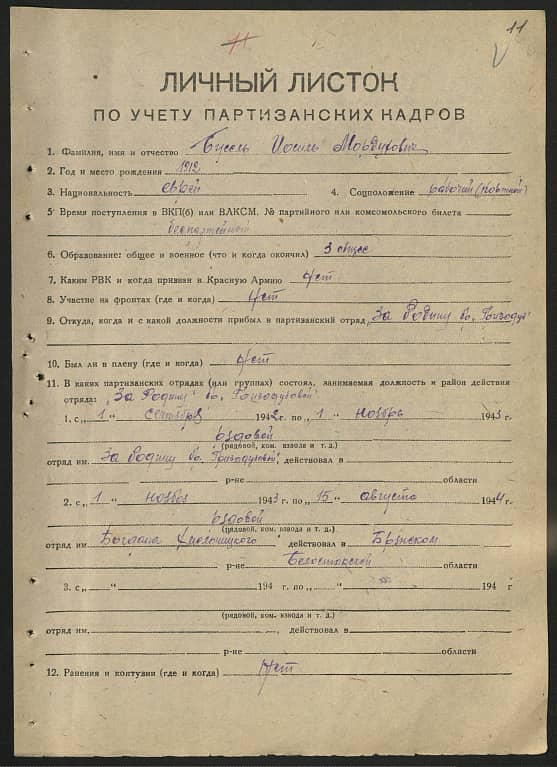 11
11
ЛИЧНЫЙ ЛИСТОК
ПО УЧЕТУ ПАРТИЗАНСКИХ КАДРОВ
1. Фамилия, имя и отчество Бусель Иосиль Мордухович
2. Год и место рождения 1912
3. Национальность еврей 4. Соцположение рабочий
5. Время поступления в ВКП(б) или ВЛКСМ. № партийного или комсомольского билета
беспартейный
6. Образование: общее и военное (что и когда окончил) 3 общее
7. Каким РВК и когда призван в Красную Армию Нет
8. Участие на фронтах (где и когда) Нет
9. Откуда, когда и с какой должности прибыл в партизанский отряд „За Родину
10. Был ли в плену (где и когда) Нет
11. В каких партизанских отрядах (или группах) состоял, занимаемая должность и район действия
отряда: „За Родину"
1. с „1" сентября 1942 г. по „1" ноября 1943 г.
рядовой
(рядовой, ком. взвода и т. д.)
отряд им. За Родину , действовал в
р-не области
2. с „1" ноября 1943 г. по „15" августа 1944 г.
рядовой
(рядовой, ком. взвода и т. д.)
отряд им. Богдана Хмельницкого действовал в Брянском
р-не Белостокской области
3. с „ " 194 г. по „ " 194 г
(рядовой, ком. взвода и т. д.)
отряд им. , действовал в
р-не области
12. Ранения и контузии (где и когда) Нет